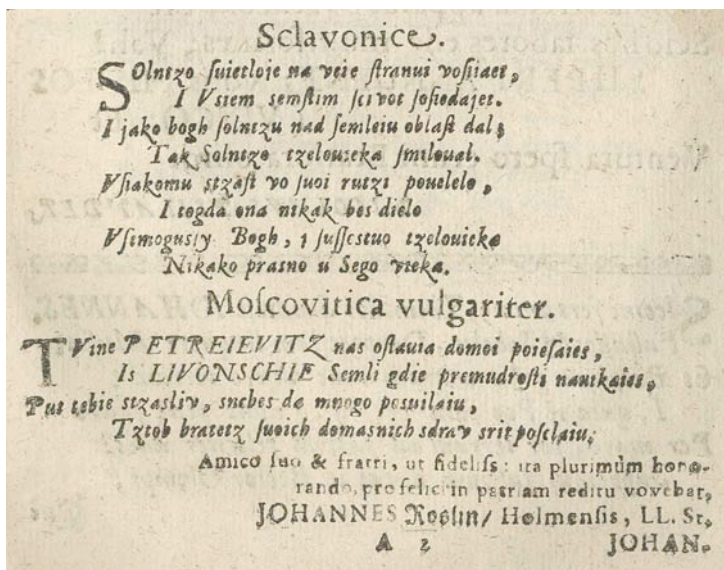 Sclavonice.
SOlntzo ſuietloje na vſie ſtranui voſſiaet,
I Vsiem semſtim ſcivot ſoſiedajet.
I jako bogh ſolntzu nad ſemleiu oblaſt dal,
Tak Solntzo tzelouieka ſmiloual.
Vſiakomu stzaſt vo ſuoi rutzi pouelelo,
I togda ona nikak bes dielo
Vſemoguſiy Bogh, i ſuſſeſtuo tzelouieka
Nikako prasno u Sego vieka.
Moſcovitica vulgariter.
TVine PETREIEVITZ nas oſtauia domoi poieſaies,
Is LIVONSCHIE Semli gdie premudroſti nautkaies,
Put tebie stzasliv, snebes da mnogo posuilaiu,
Tztob bratetz ſuoich domasnich sdrav srit poſclaiu,
Amico ſuo & fratri, ut fideliſs: ita plurimùm hono-
rando, pro felici in patriam reditu vovebat,
JOHANNES Roslin/ Holmenſis, LL. St,
A 2 JOHAN-